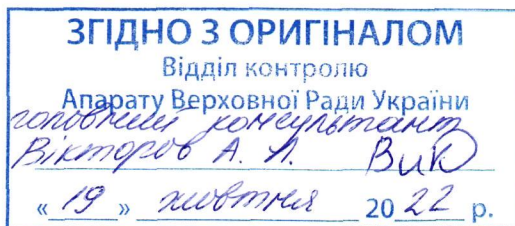 ЗГІДНО З ОРИГІНАЛОМ
Відділ контролю
Апарату Верховної Ради України
головний консультант
Вікторов А. Л.
«19» жовтня 2022 р.